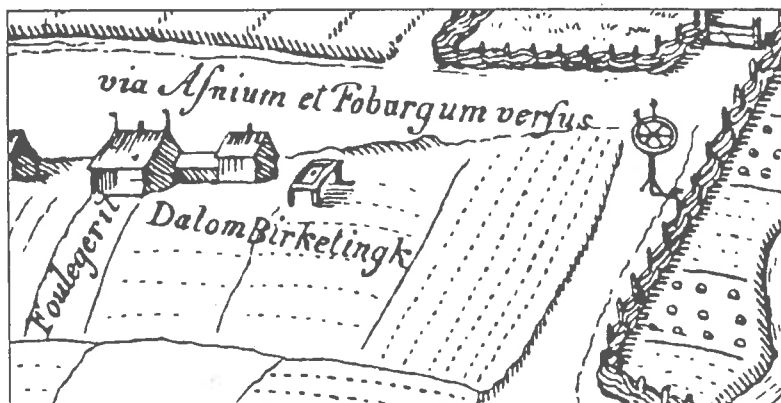 via Aſnium et Fobargum verſus
DalomBirketingk
Foulegerii